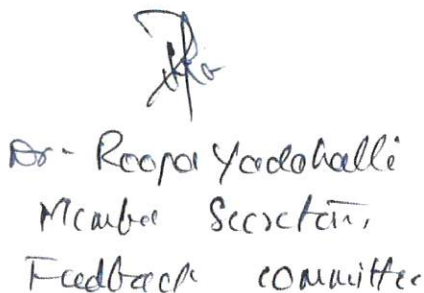 Dr- Roopa Yadahalli
Member Secretary,
Feedback committee